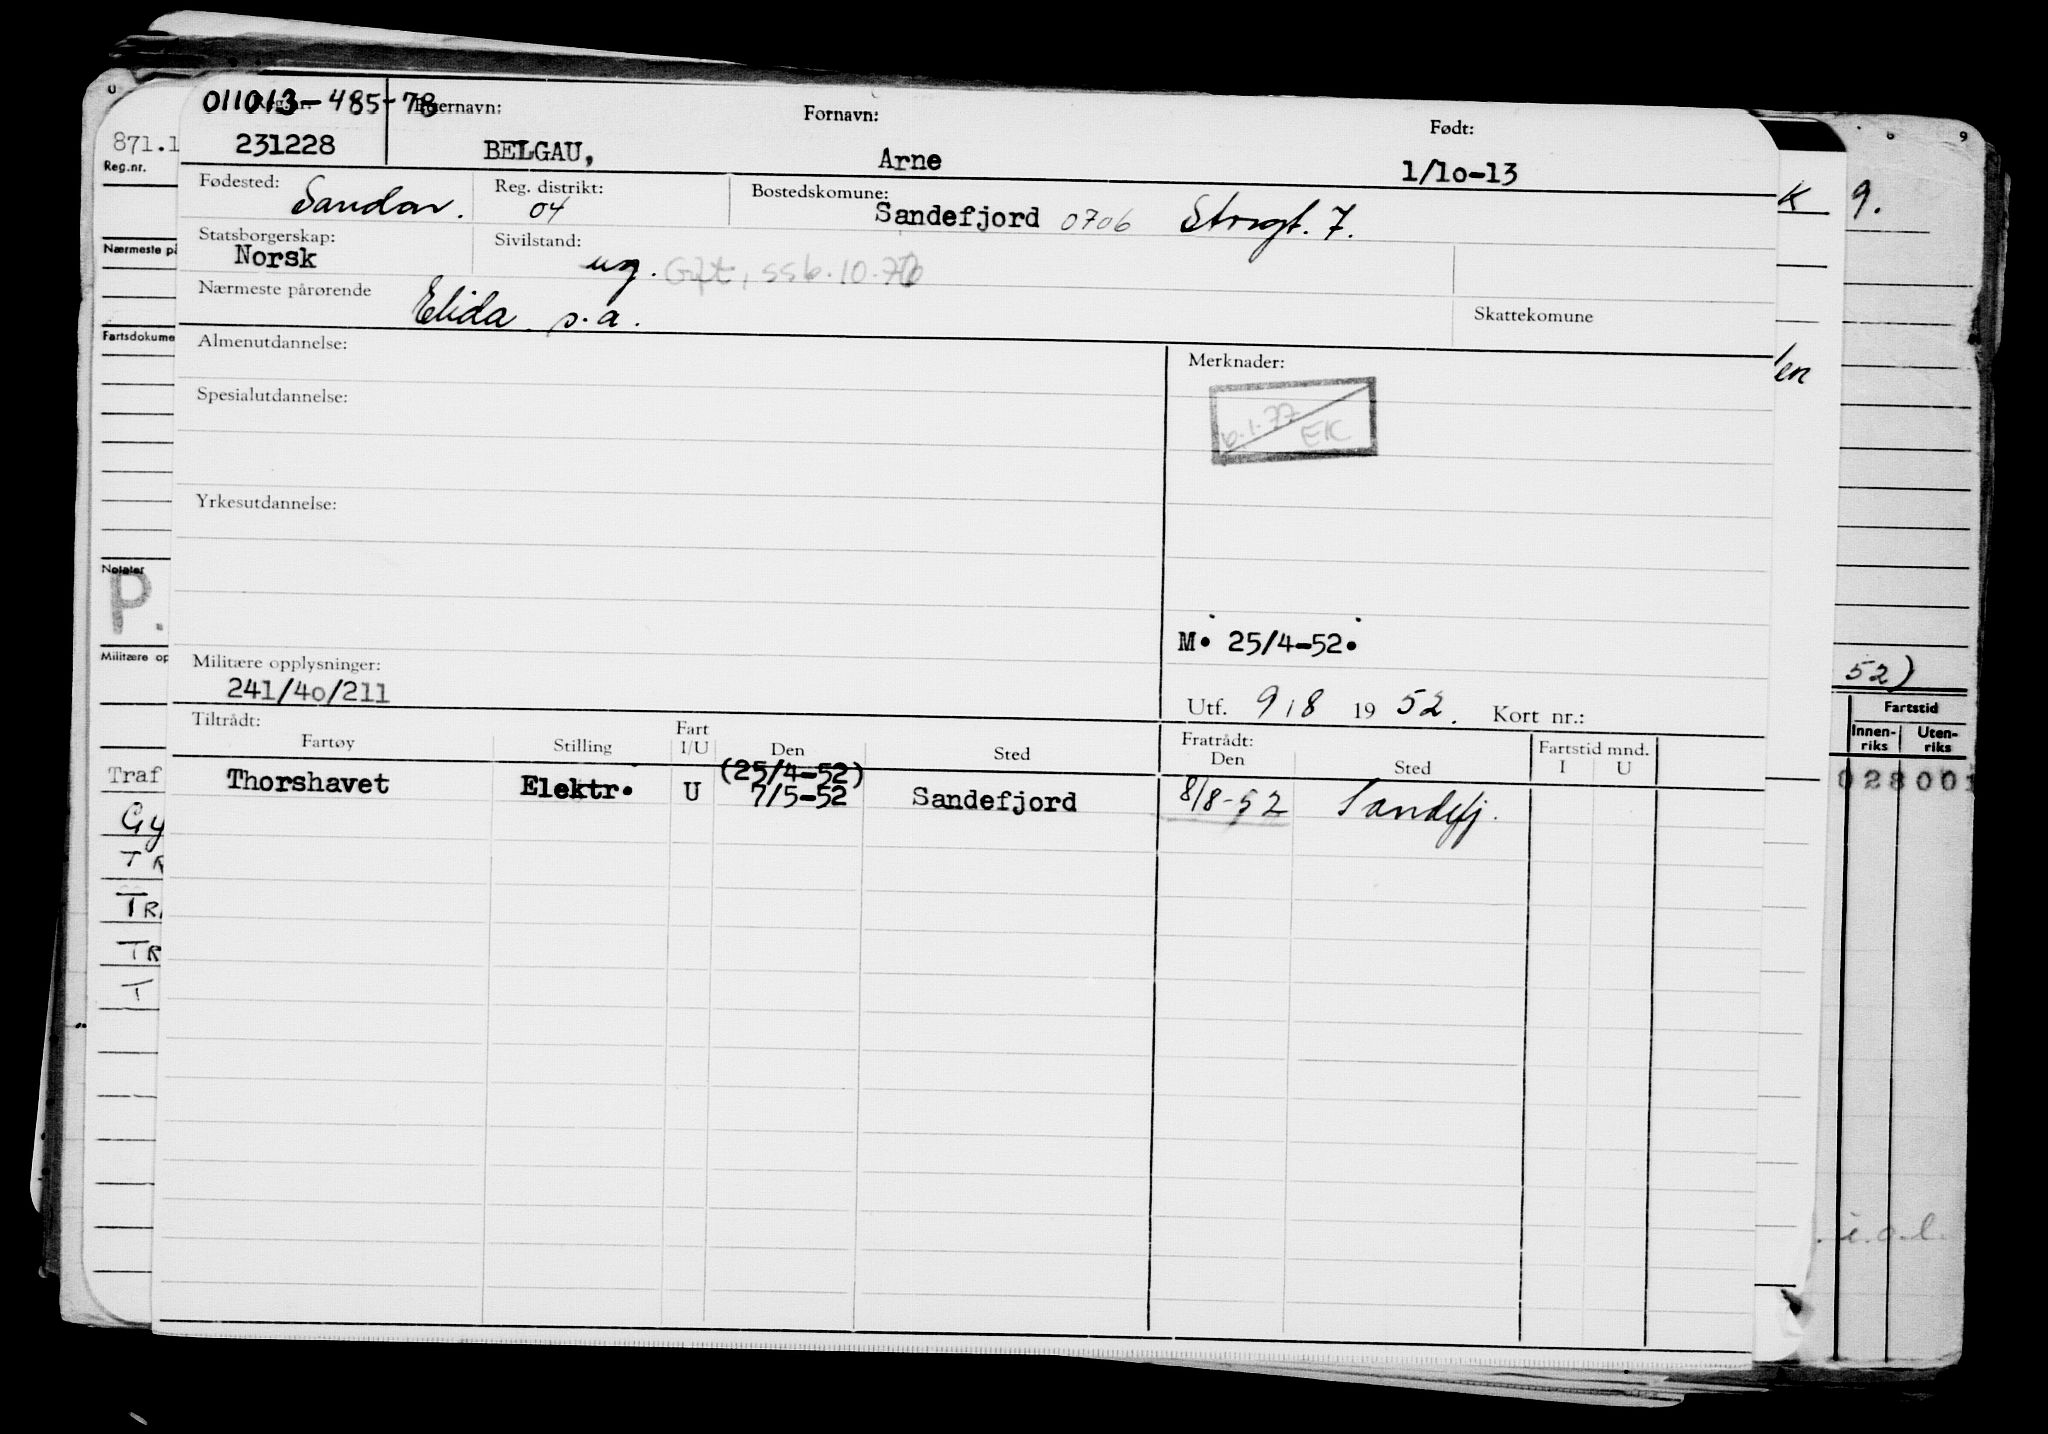 011013-485-78
Reg.nr. Etternavn: Fornavn: Født:
231228 BELGAU, Arne 1/10-13
Fødested: Sandar. Reg. distrikt: 04 Bostedskomune: Sandefjord 0706 Strvgt. 7.
Statsborgerskap: Norsk Sivilstand: ug. Gift, ssb. 10.76
Nærmeste pårørende Elida s.a. Skattekomune
Almenutdannelse: Merknader:
6.1.77 EK
Spesialutdannelse:
Yrkesutdannelse:
M. 25/4-52.
Militære opplysninger:
241/40/211
Utf. 9/8 1952. Kort nr.:
Tiltrådt: Fratrådt:
Fartøy Stilling Fart I/U Den Sted Den Sted Fartstid mnd. I U
(25/4-52)
Thorshavet Elektr. U 7/5-52 Sandefjord 8/8-52 Sandefj.
871.1
Reg.nr.
Nærmeste på
Fartsdokume
Notater
P.
Militære op
Traf
Gy
TR
TRA
TR
T
K 9.
len
52)
Fartstid
Innen-riks Uten-riks
028001
i.o.l.